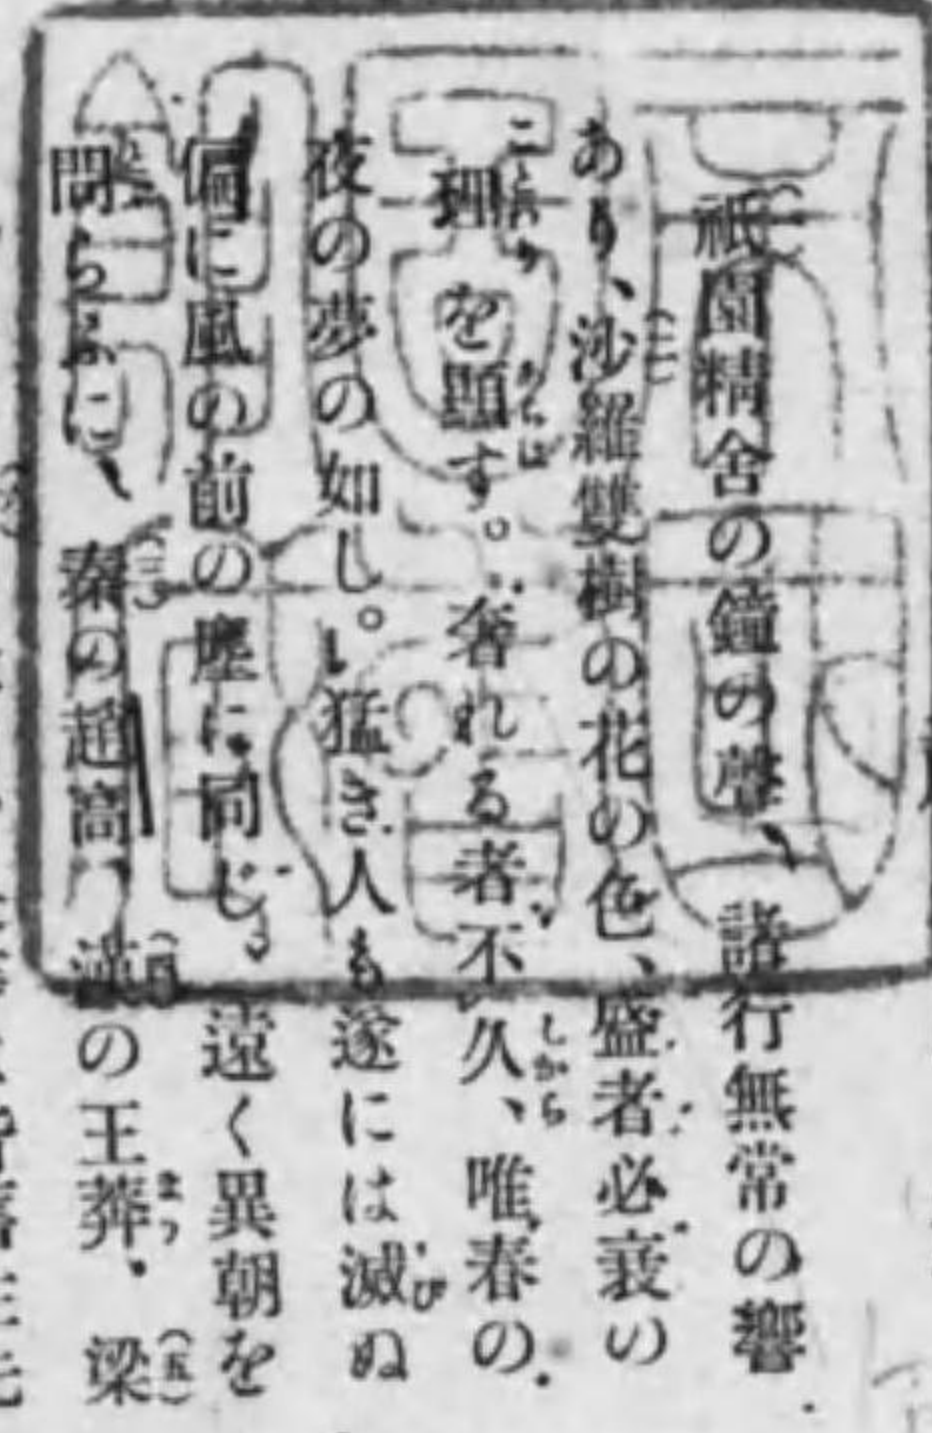 祇園精舍の鐘の聲、諸行無常の響
あり、沙羅雙樹の花の色、盛者必衰の
理を顯す。奢れる者不久、唯春の
夜の夢の如し。猛き人も遂には滅ぬ
偏に風の前の塵に同じ。遠く異朝を
問らふに、秦の超高、漢の王莽、梁